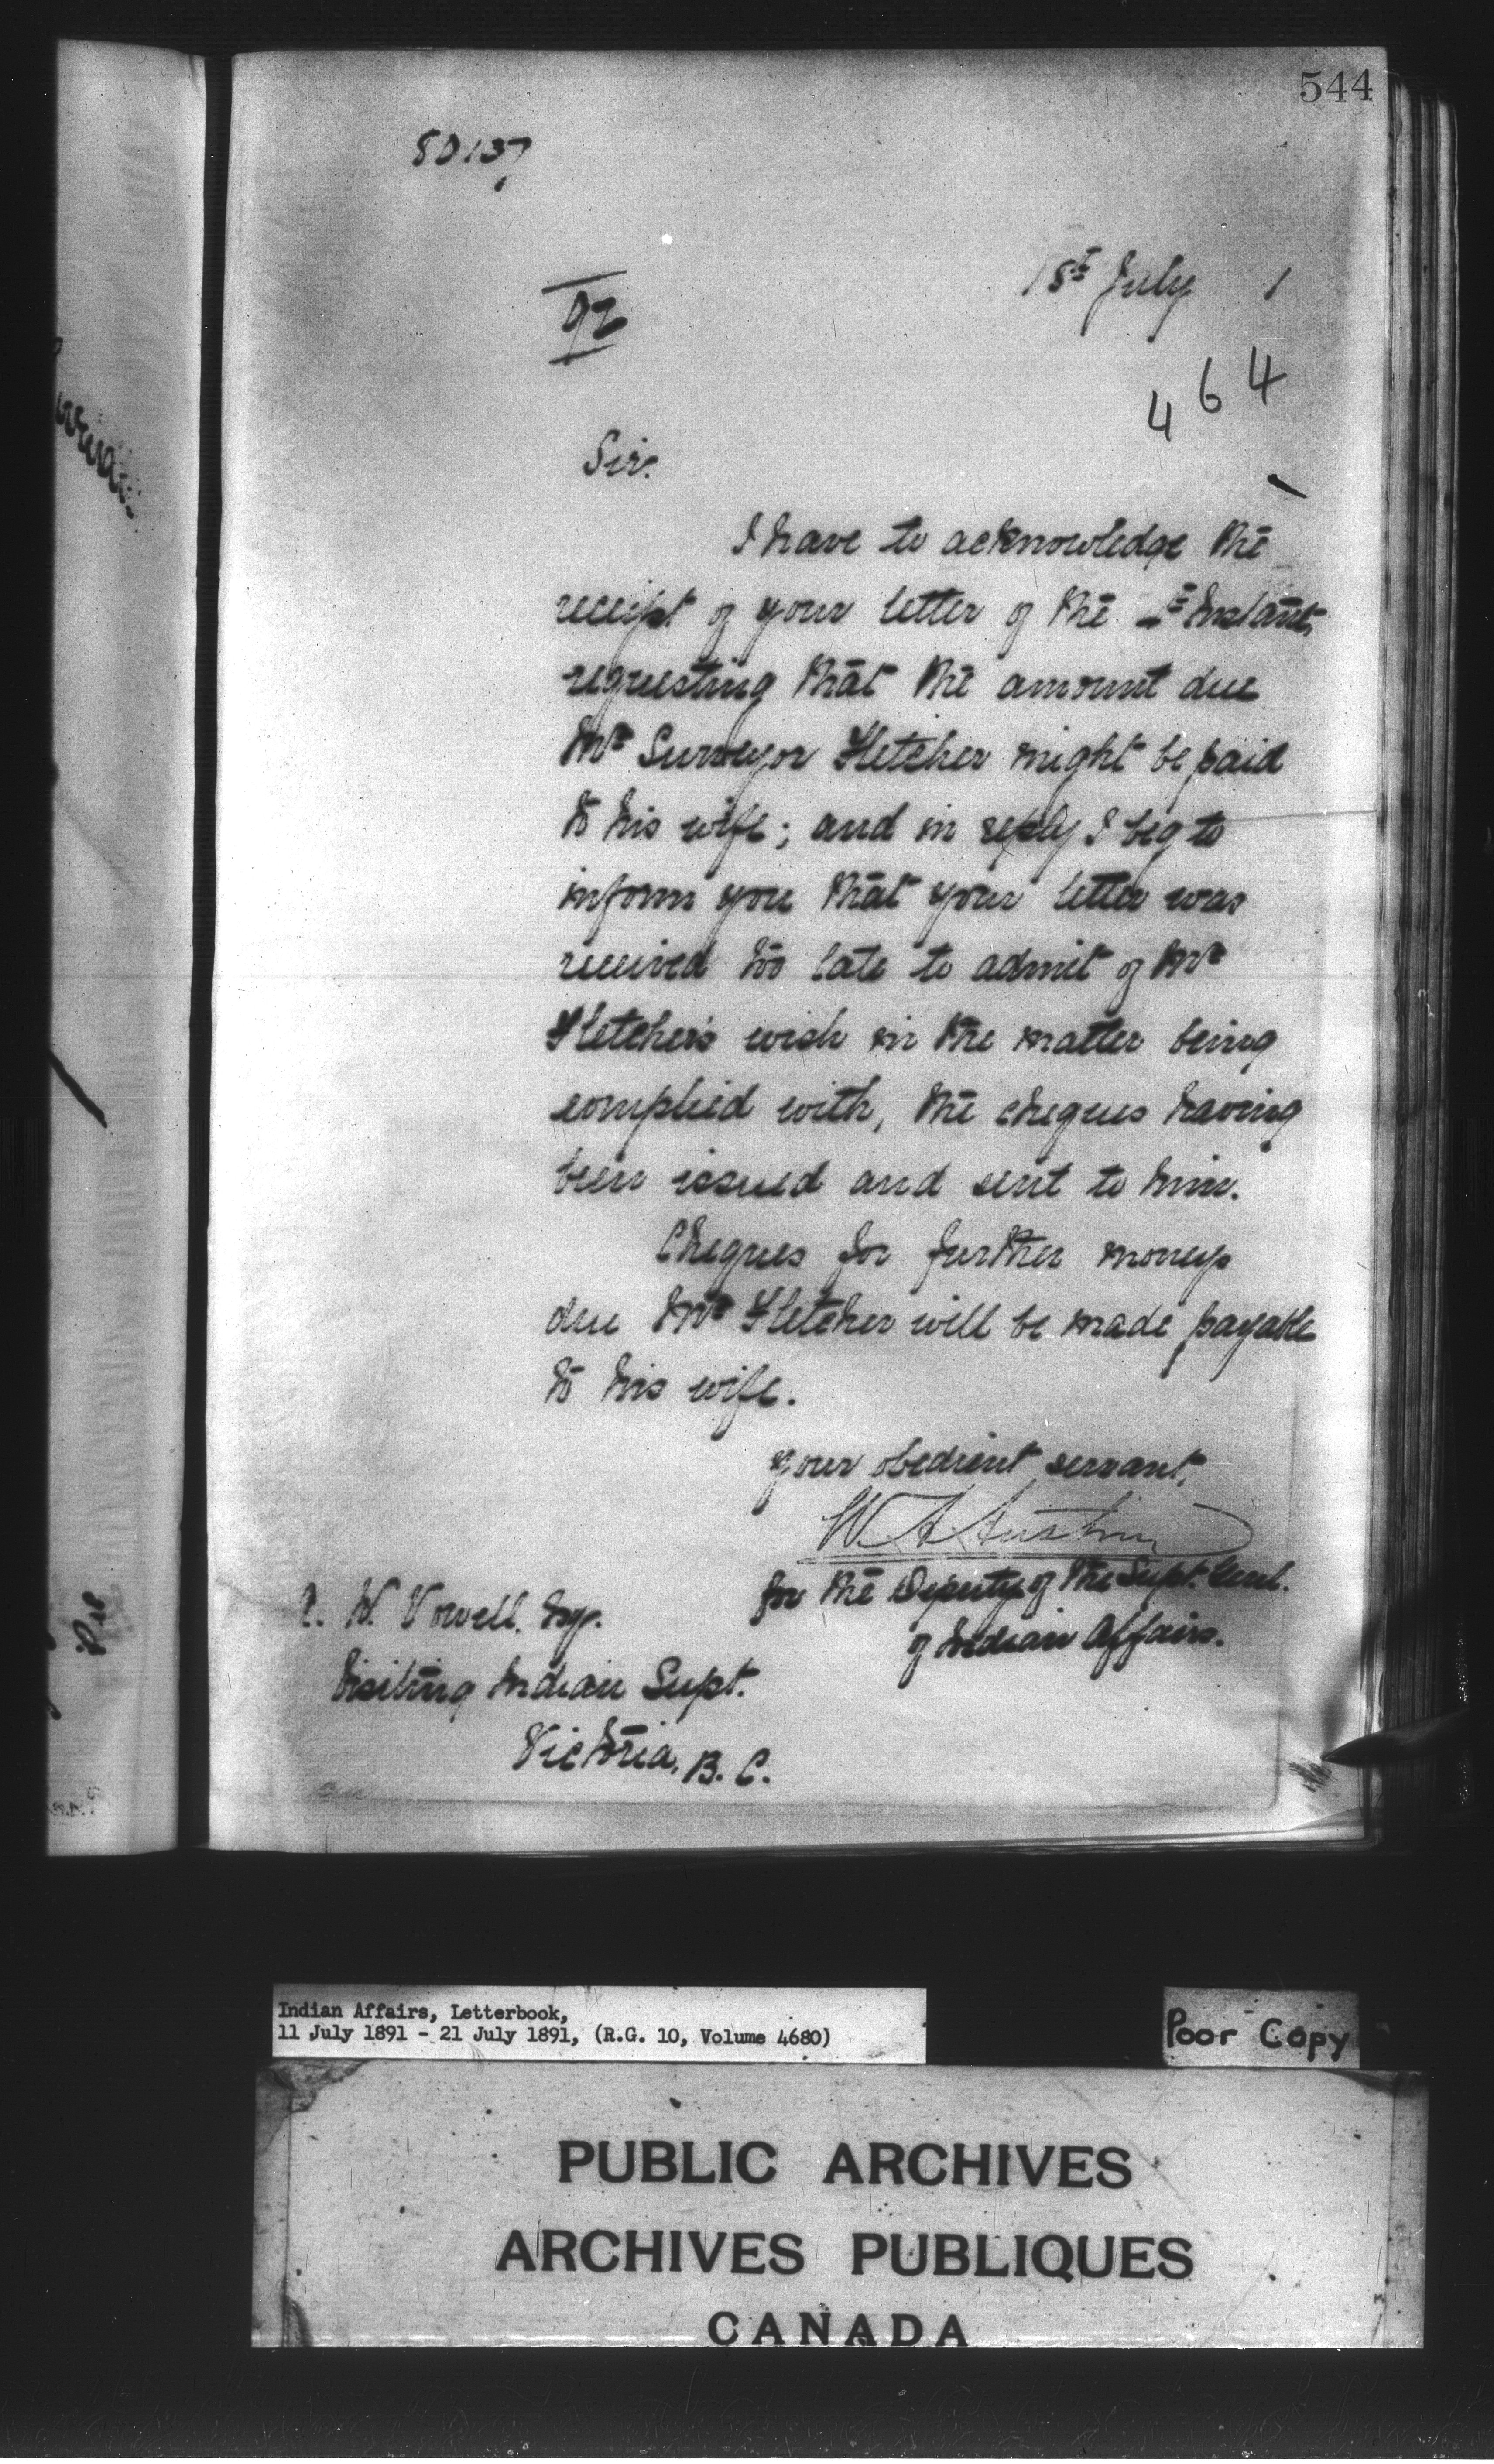 544
80137
18th July 1
92
464
Sir.
I have to acknowledge the
receipt of your letter of the th Instant,
requesting that the amount due
Mr Surveyor Fletcher might be paid
to his wife; and in reply I beg to
inform you that your letter was
received too late to admit of Mr
Fletcher's wish in the matter being
complied with, the cheques having
been issued and sent to him.
Cheques for further moneys
due Mr Fletcher will be made payable
to his wife.
Your obedient servant,
W A Austin
for the Deputy of the Supt. Genl.
of Indian Affairs.
W. Vowell. Esq.
Visiting Indian Supt.
Victoria, B. C.
Indian Affairs, Letterbook,
11 July 1891 - 21 July 1891, (R.G. 10, Volume 4680)
Poor Copy
PUBLIC ARCHIVES
ARCHIVES PUBLIQUES
CANADA